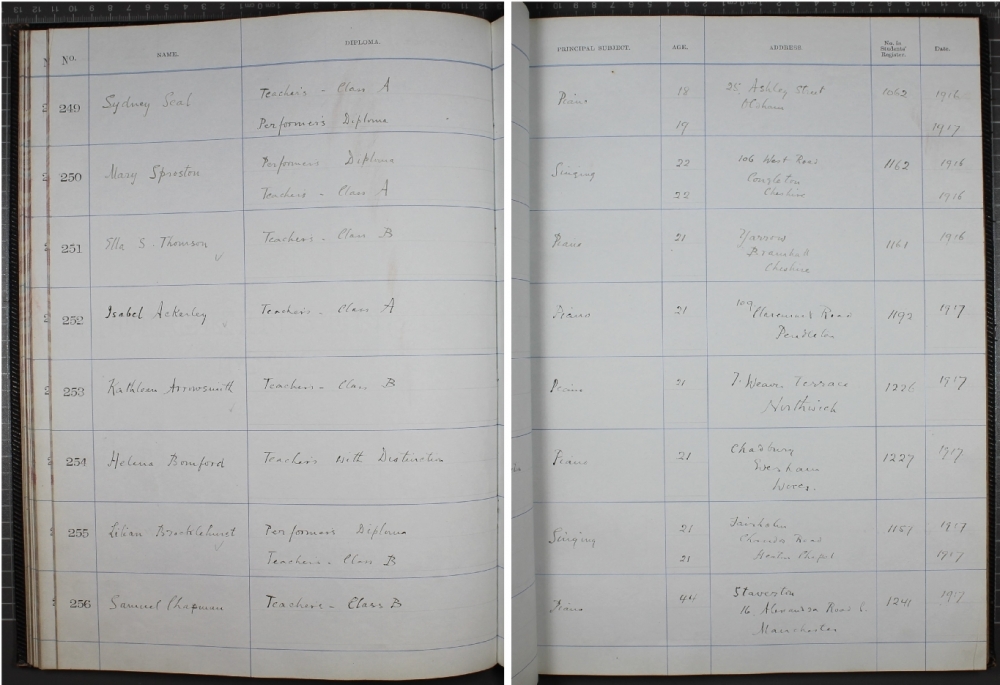 No. NAME. DIPLOMA.
PRINCIPAL SUBJECT. AGE. ADDRESS No. in Students' Register. Date.
249 Sydney Seal Teacher's - Class A Piano 18 25, Ashley Street 1062 1916
Performer's Diploma 19 1917
250 Mary Sproston Performer's Diploma Singing 22 106 West Road 1162 1916
Congleton
Teacher's - Class A 22 Cheshire 1916
251 Ella S. Thomson Teacher's - Class B Piano 21 Yarrow 1161 1916
Bramhall
Cheshire
252 Isabel Ackerley Teacher's - Class A Piano 21 109 Claremont Road 1192 1917
Pendleton
253 Kathleen Arrowsmith Teachers - Class B Piano 21 7. Weaver Terrace 1226 1917
Northwich
254 Helena Bomford Teachers with Distinction Piano 21 Chadbury 1227 1917
Evesham
Worcs.
255 Lilian Brocklehurst Performer's Diploma Singing 21 Fairholm 1917
Road
Teachers - Class B 21 Heaton Chapel 1917
256 Samuel Chapman Teachers - Class B Piano 44 Staverton 1241 1917
16 Alexandra Road S.
Manchester